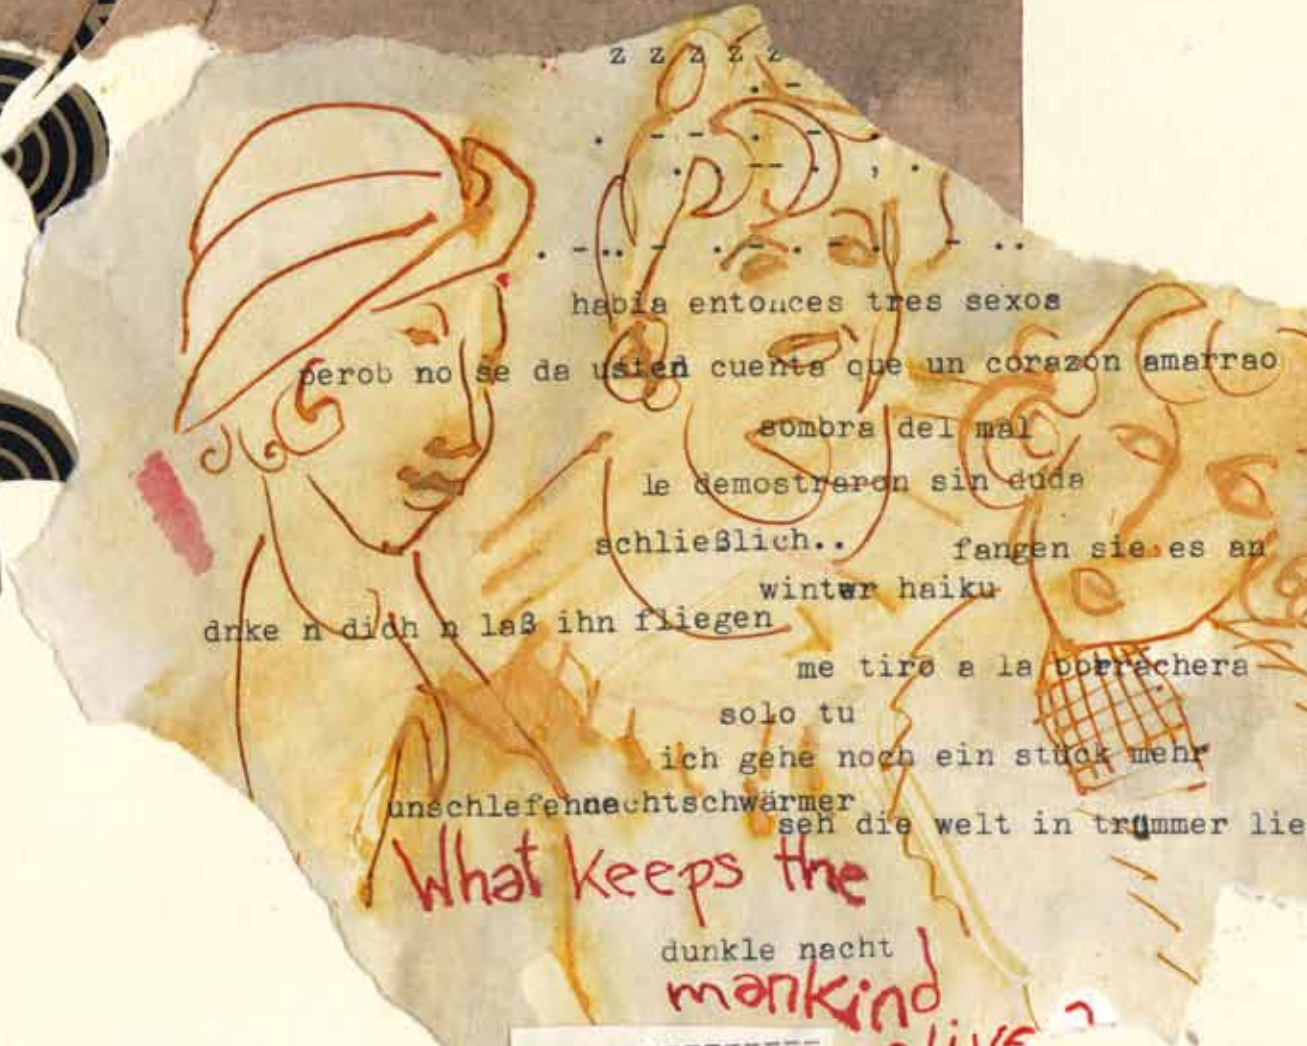 z z z z z
. -
. - - . -
. . -- . , .
. -.. - . -. . -. - ..
había entonces tres sexos
perob no se da usted cuenta que un corazón amarrao
sombra del mal
le demostraron sin duda
schließlich..
fangen sie es an
winter haiku
dnke n dich n laß ihn fliegen
me tiro a la borrachera
solo tu
ich gehe noch ein stück mehr
unschlefenne chtschwärmer
seh die welt in trümmer lie
What keeps the
dunkle nacht
mankind
alive?